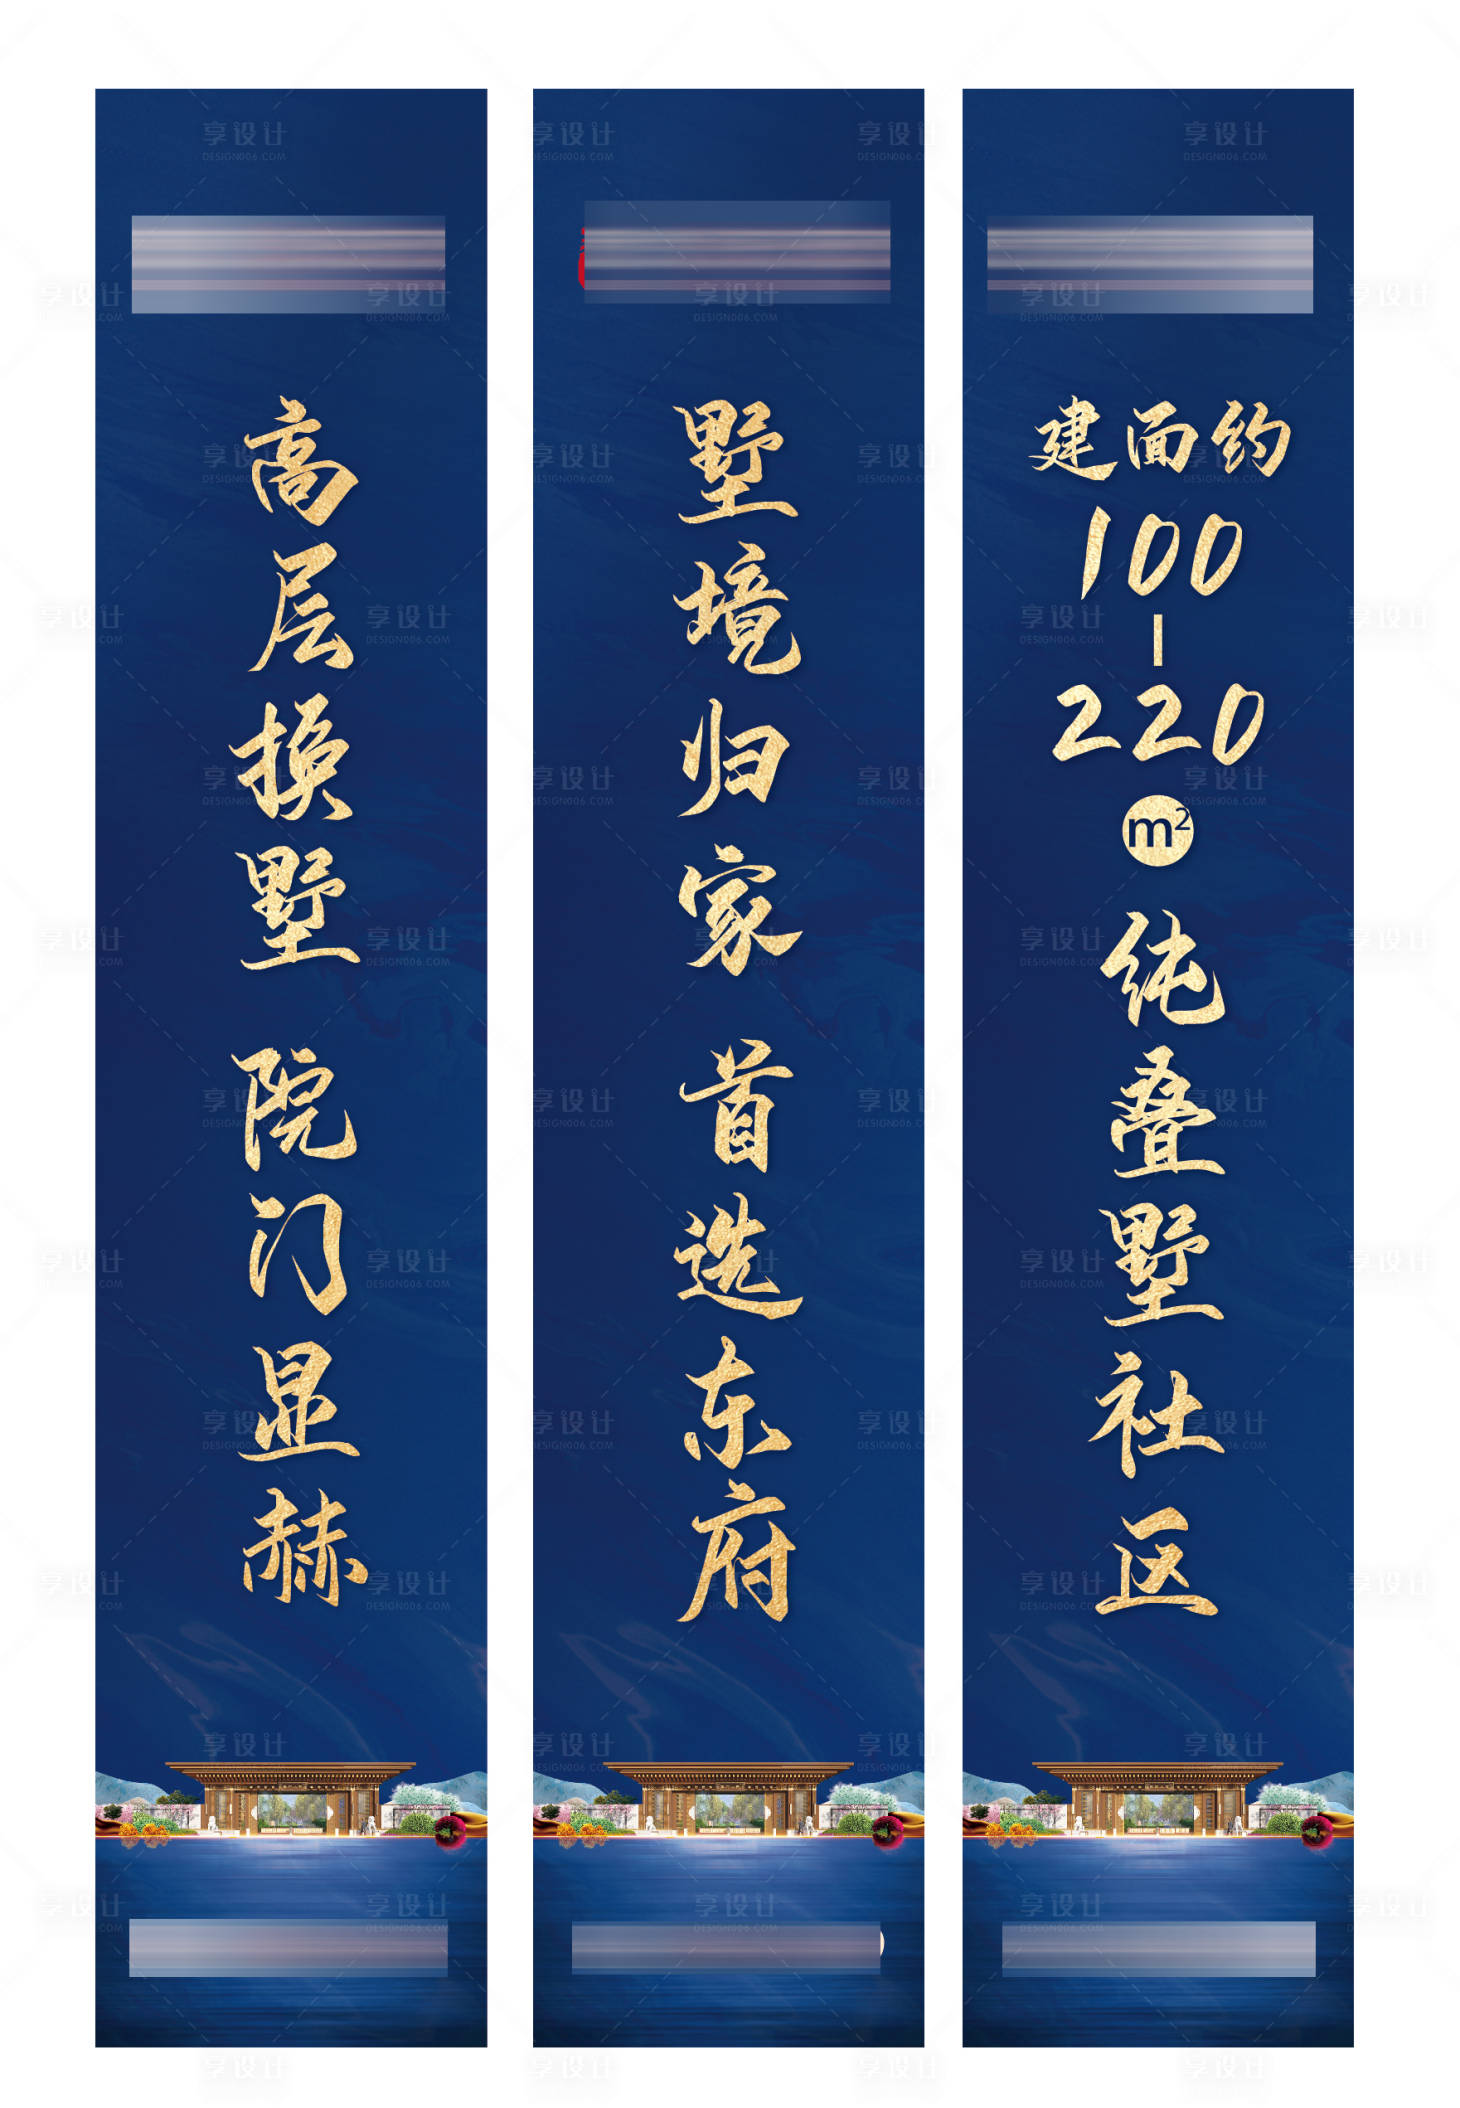 高层换墅 院门显赫
墅境归家 首选东府
建面约
100
-
220
m²
纯叠墅社区
享设计
DESIGN006.COM